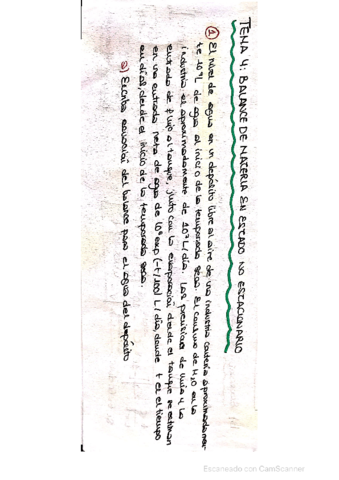 TEMA 4: BALANCE DE MATERIA EN ESTADO NO ESTACIONARIO
① El nivel de agua en un depósito libre al aire de una industria contenía aproximadamen-
te 10⁹ L de agua al inicio de la temporada seca. El consumo de H₂O en la
industria es aproximadamente de 10⁷ L/día. Las previsiones de lluvia y la
entrada de flujo al tanque, junto con la evaporación desde el tanque se estiman
en una entrada neta de agua de 10⁶ exp (-t/100) L/día, donde t es el tiempo
en días, desde el inicio de la temporada seca.
a) Escriba ecuación del balance para el agua del depósito
Escaneado con CamScanner